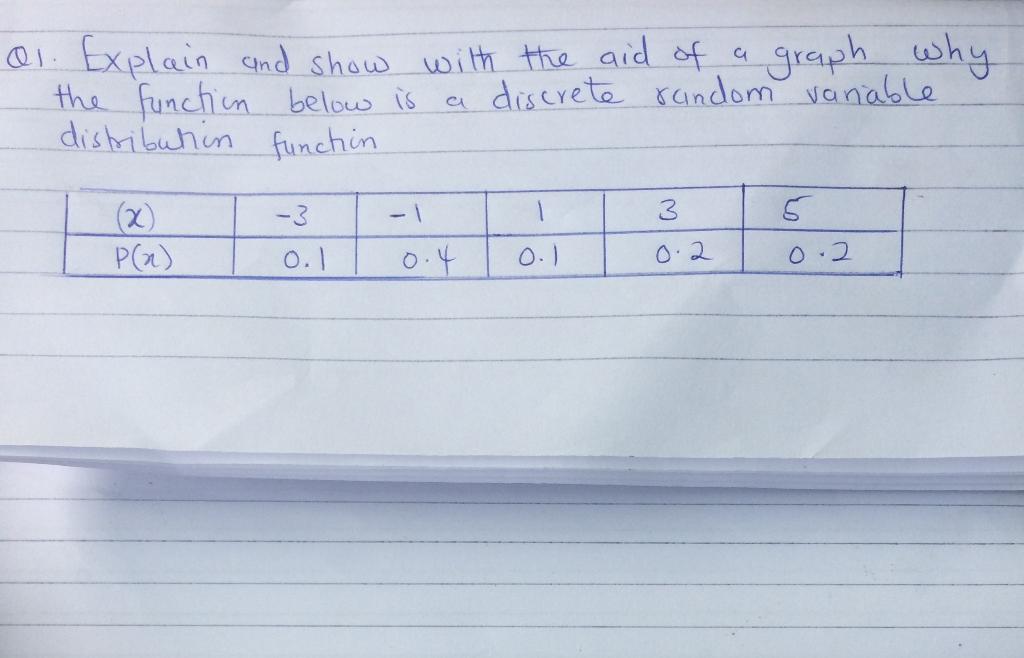 Q1. Explain and show with the aid of a graph why
the function below is a discrete random variable
distribution function
(x) -3 -1 1 3 5
P(x) 0.1 0.4 0.1 0.2 0.2